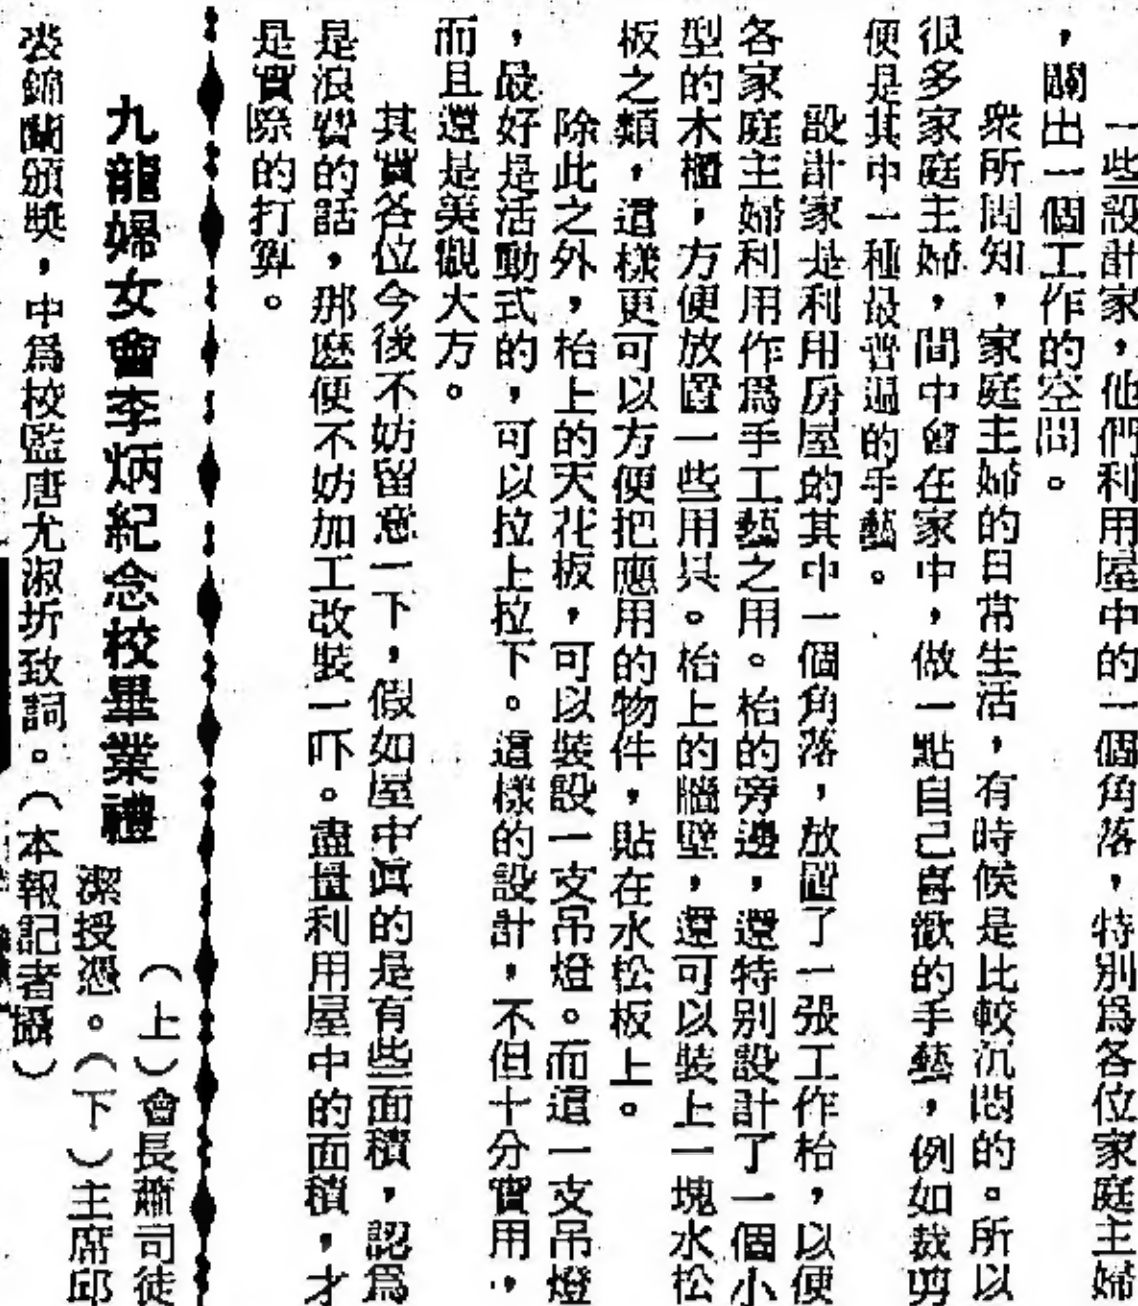 一些設計家，他們利用屋中的一個角落，特別爲各位家庭主婦
，闢出一個工作的空間。
衆所周知，家庭主婦的日常生活，有時候是比較沉悶的。所以
很多家庭主婦，間中會在家中，做一點自己喜歡的手藝，例如裁剪
便是其中一種最普遍的手藝。
設計家是利用房屋的其中一個角落，放置了一張工作枱，以便
各家庭主婦利用作爲手工藝之用。枱的旁邊，還特別設計了一個小
型的木櫃，方便放置一些用具。枱上的牆壁，還可以裝上一塊水松
板之類，這樣更可以方便把應用的物件，貼在水松板上。
除此之外，枱上的天花板，可以裝設一支吊燈。而這一支吊燈
，最好是活動式的，可以拉上拉下。這樣的設計，不但十分實用，
而且還是美觀大方。
其實各位今後不妨留意一下，假如屋中眞的是有些面積，認爲
是浪費的話，那麽便不妨加工改裝一吓。盡量利用屋中的面積，才
是實際的打算。
九龍婦女會李炳紀念校畢業禮
（上）會長蕭司徒
潔授憑。（下）主席邱
裘錦蘭頒獎，中爲校監唐尤淑圻致詞。（本報記者攝）